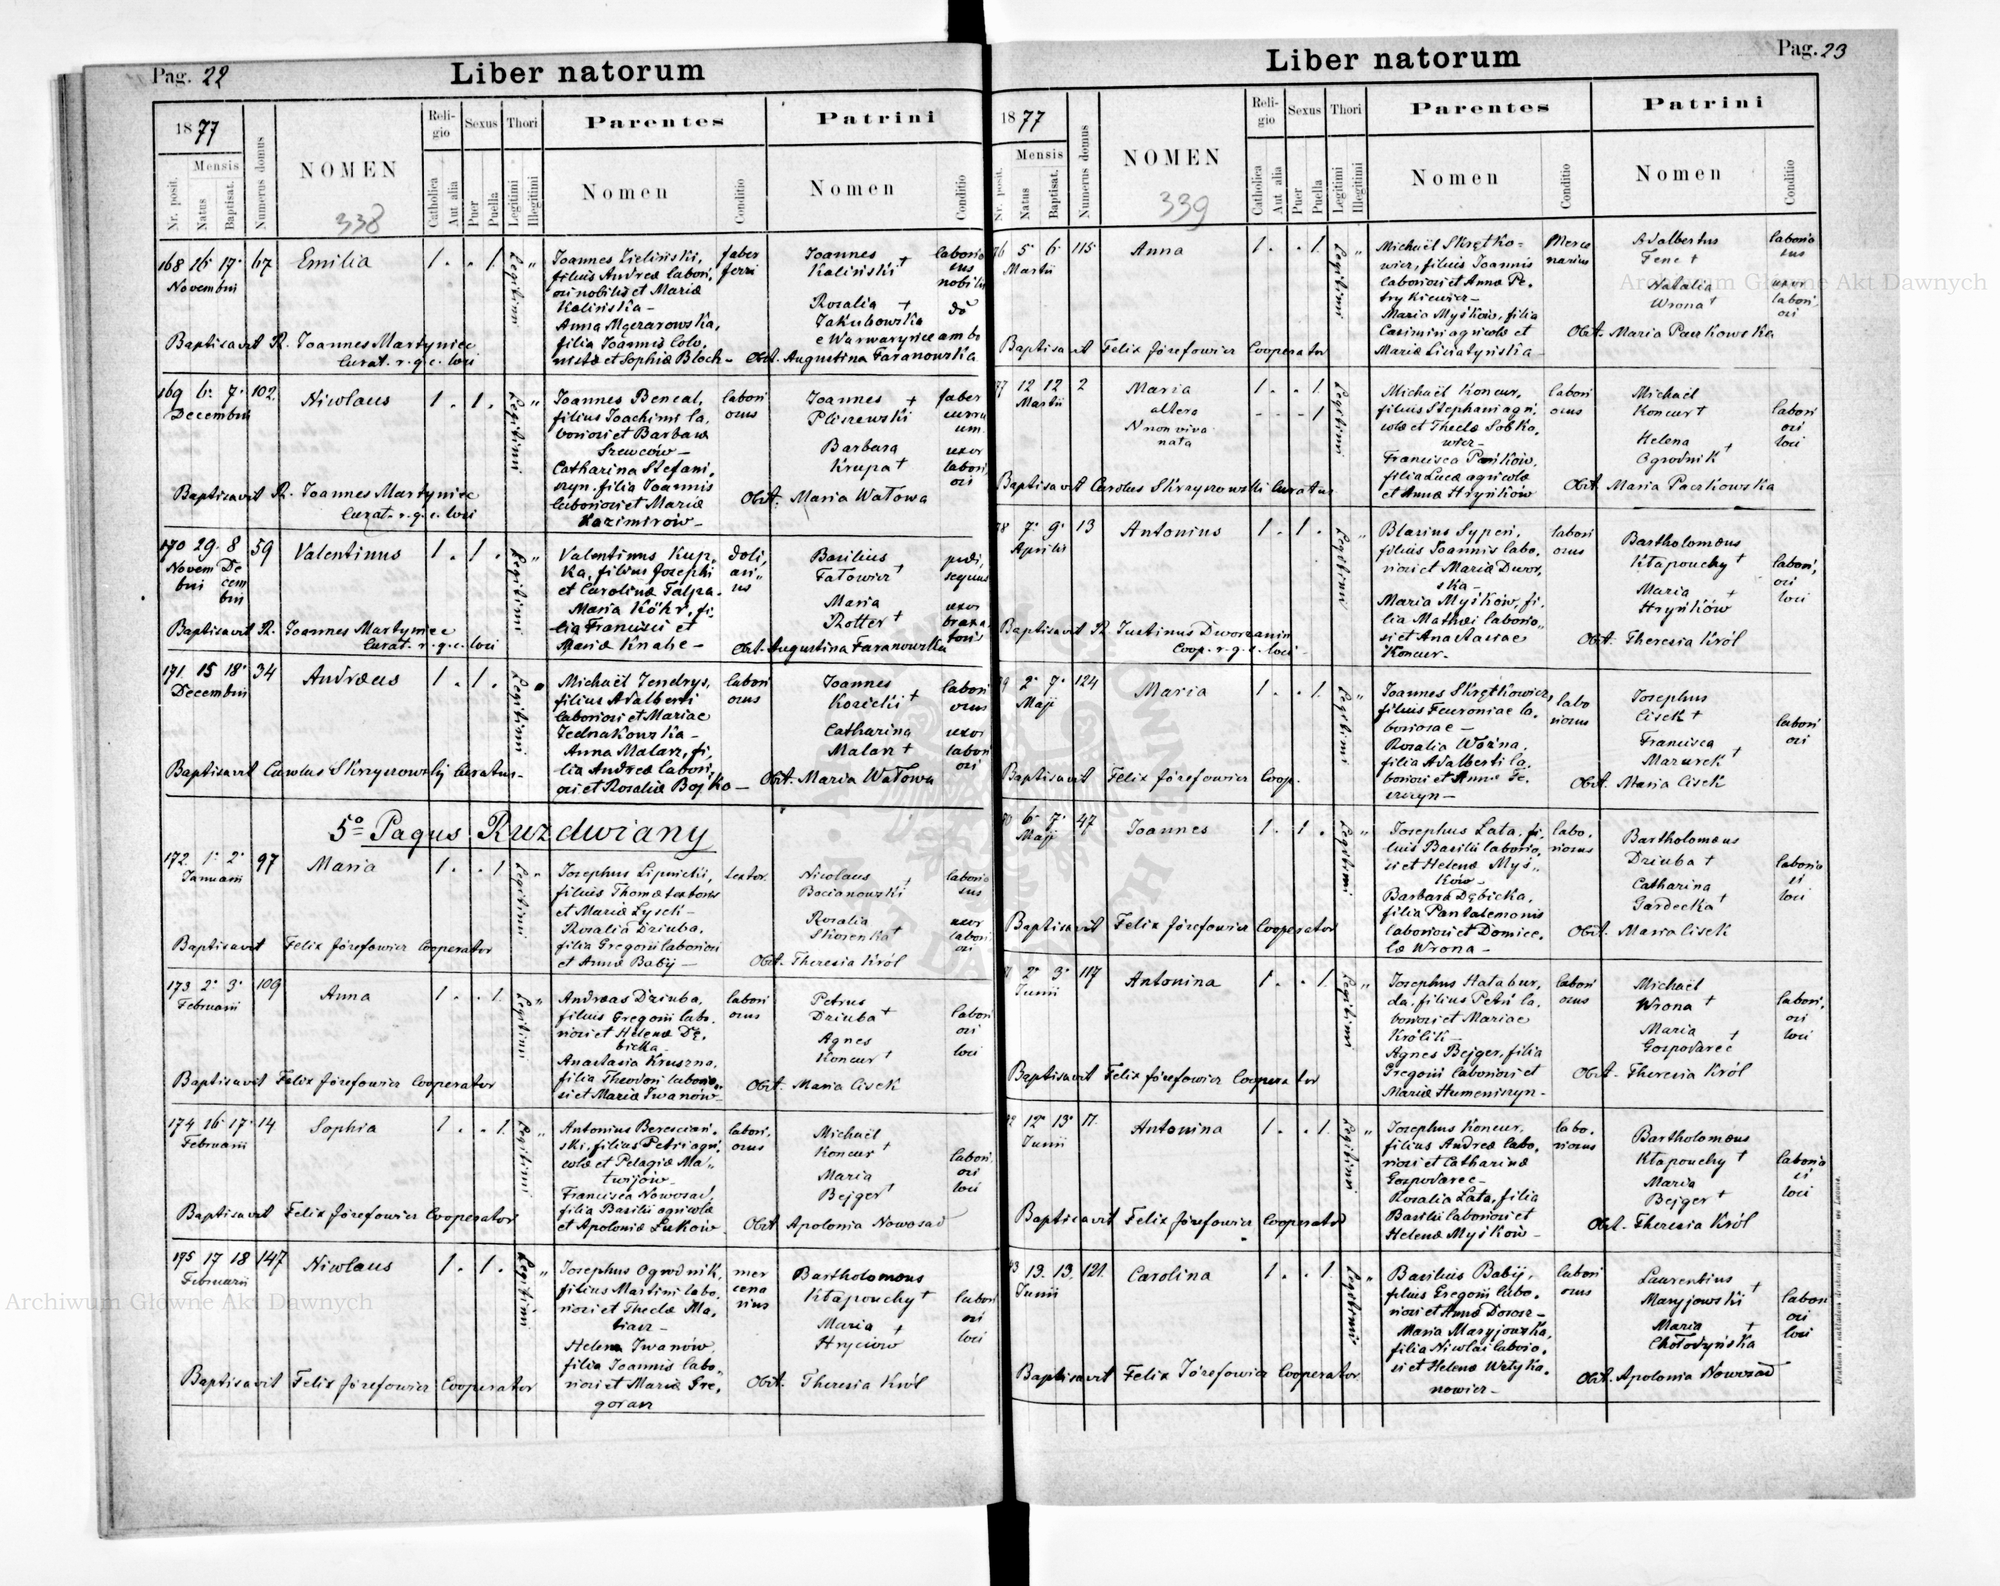 Pag. 22
Liber natorum
1877
Mensis
Nr. posit.
Natus
Baptisat.
Numerus domus
NOMEN
338
Religio
Catholica
Aut alia
Sexus
Puer
Puella
Thori
Legitimi
Illegitimi
Parentes
Nomen
Conditio
Patrini
Nomen
Conditio
168 16 17 67 Emilia 1 . . 1 Legitimi "
Novembri
Joannes Zieliński,
filius Andreæ labori,
osi nobilis et Mariæ
Kalińska –
filia Joannis Colo,
nistæ et Sophiæ Bloch –
faber
ferri
Joannes
Kaliński +
Rosalia +
Jakubowska
e Warwaryńce ambo
laborio
sus
nobilis
do
Baptisavit R. Joannes Martyniec
Curat. r. g. c. loci
Obst. Augustina Taranowska
169 6 7 102 Nicolaus 1 . 1 . Legitimi "
Decembri
Joannes Bencal,
filius Joachimi la,
boriosi et Barbaræ
Szewców –
Catharina Stefani,
szyn. filia Joannis
laboriosi et Mariæ
Kazimirów –
labori
osus
Joannes +
Pliszewski
Barbara
Krupa +
faber
curru
um
uxor
labori,
osi
Baptisavit R. Joannes Martyniec
Curat. r. g. c. loci
Obst. Maria Watowa
170 29 8 59 Valentinus 1 . 1 . Legitimi "
Novem De
bri cem
bri
Valentinus Kup,
ka, filius Josephi
et Carolinæ Talpa.
Maria Köhr, fi,
lia Francisci et
Mariæ Knahe –
doli,
ari"
us
Basilius
Fatowicz +
Maria
Rotter +
pedi,
sequus
uxor
braxa
toris
Baptisavit R. Joannes Martyniec
Curat. r. g. c. loci
Obst. Augustina Taranowska
171. 15 18 34 Andreas 1 . 1 . Legitimi
Decembri
Michaël Jendrys,
filius Adalberti
laboriosi et Mariae
Jednakowska –
Anna Malarz, fi,
lia Andreæ labori,
osi et Rosaliæ Bojko –
labori
osus
Joannes
Kozicki +
Catharina
Malarz +
labori
osus
uxor
labori
osi
Baptisavit Carolus Skrzyszowski Curatus –
Obst. Maria Watowa
5º Pagus Ruzdwiany
172 1 2 97 Maria 1 . . 1 Legitimi "
Januarii
Josephus Lipnicki,
filius Thomæ textoris
et Mariæ Łysek –
Rosalia Dziuba,
filia Gregorii laboriosi
et Annæ Babij –
textor.
Nicolaus +
Bocianowski
Rosalia
Skorenka +
laborio
sus
uxor
labori
osi
Baptisavit Felix Józefowicz Cooperator
Obst. Theresia Król
173 2 3 109 Anna 1 . . 1 Legitimi "
Februarii
Andreas Dziuba,
filius Gregorii labo,
riosi et Helenæ Dę,
bicka –
Anastasia Kruszna,
filia Theodori laborio,,
si et Mariæ Iwanów –
labori
osus
Petrus
Dziuba +
Agnes
Koncur +
labori
osi
loci
Baptisavit Felix Józefowicz Cooperator
Obst. Maria Cisek
174 16 17 14 Sophia 1 . . 1 Legitimi "
Februarii
Antonius Berescian,
ski, filius Petri agri,
colæ et Pelagiæ Ma,,
twijów –
Francisca Nowosad,
filia Basilii agricolæ
et Apoloniæ Łukow –
labori,
osus
Michaël
Koncur +
Maria
Bejger +
labori
osi
loci
Baptisavit Felix Józefowicz Cooperator
Obst. Apolonia Nowosad
175 17 18 147 Nicolaus 1 . 1 . Legitimi "
Februarii
Josephus Ogrodnik,
filius Martini labo,
riosi et Theclæ Ma,
ziarz –
Helena Iwanów,
filia Joannis labo,
riosi et Mariæ Gre,
gorasz
mer
cena
rius
Bartholomæus
Kłapouchy +
Maria +
Hryciów
labori
osi
loci
Baptisavit Felix Józefowicz Cooperator
Obst. Theresia Król
Pag. 23
Liber natorum
1877
Mensis
Nr. posit.
Natus
Baptisat.
Numerus domus
NOMEN
339
Religio
Catholica
Aut alia
Sexus
Puer
Puella
Thori
Legitimi
Illegitimi
Parentes
Nomen
Conditio
Patrini
Nomen
Conditio
76 5 6 115 Anna 1 . . 1 Legitimi "
Martii
Michaël Skrętko-
wicz, filius Joannis
laboriosi et Annæ Pe,
trykiewicz –
Maria Myśków, filia
Casimiri agricolæ et
Merce
narius
Adalbertus
Fene +
Natalia
Wrona +
laborio
sus
uxor
labori
osi
Baptisavit Felix Józefowicz Cooperator
Obst. Maria Paczkowska
77 12 12 2 Maria 1 . . 1 Legitimi
Martii
altera
N non viva
nata
Michaël Koncur,
filius Stephani agri,
colæ et Theclæ Sobko,
wicz –
Francisca Pańków,
filia Lucæ agricolæ
et Annæ Hryńków
labori
osus
Michaël
Koncur +
Helena +
Ogrodnik
labori
osi
loci
Baptisavit Carolus Skrzyszowski Curatus
Obst. Maria Paczkowska
78 7 9 13 Antonius 1 . 1 . Legitimi "
Aprilis
Blasius Sypeń,
filius Joannis labo,
riosi et Mariæ Dwor,
ska –
Maria Myśków, fi,
lia Mathæi laborio,,
si et Anastasiae
Koncur –
labori
osus
Bartholomæus
Kłapouchy +
Maria +
Hryńków
labori,
osi
loci
Baptisavit R. Justinus Dworzanin
Coop. r. g. c. loci
Obst. Theresia Król
79 2 7 124 Maria 1 . . 1 Legitimi "
Maji
Joannes Skrętkowicz,
filius Feuroniae la,
boriosae –
Rosalia Woźna,
filia Adalberti la,
labo
riosus
Josephus
Cisek +
Francisca +
Mazurek
labori
osi
Baptisavit Felix Józefowicz Coop.
Obst. Maria Cisek
80 6 7 47 Joannes 1 . 1 . Legitimi "
Maji
Josephus Łata, fi,
lius Basilii laborio,
si et Helenæ Myś,
ków –
Barbara Dębicka,
filia Pantalemonis
laboriosi et Domice,
læ Wrona –
labo,
riosus
Bartholomæus
Dziuba +
Catharina
Gardecka +
laborio
si
loci
Baptisavit Felix Józefowicz Cooperator
Obst. Maria Cisek
81 2 3 117 Antonina 1 . . 1 Legitimi "
Junii
Josephus Hałabur,
da, filius Petri la,
boriosi et Mariae
Królik –
Agnes Bejger, filia
Gregorii laboriosi et
Mariæ Humeniszyn –
labori
osus
Michaël
Wrona +
Maria +
Gospodarec
labori,
osi
loci
Baptisavit Felix Józefowicz Cooperator
Obst. Theresia Król
82 12 13 11 Antonina 1 . . 1 Legitimi "
Junii
Josephus Koncur,
filius Andreæ labo,
riosi et Catharinæ
Gospodarec –
Rosalia Łata, filia
Basilii laboriosi et
Helenæ Myśków –
labo,
riosus
Bartholomæus
Kłapouchy +
Maria
Bejger +
laborio
si
loci
Baptisavit Felix Józefowicz Cooperator
Obst. Theresia Król
83 13 13 121 Carolina 1 . . 1 Legitimi "
Junii
Basilius Babij,
filius Gregorii labo,
riosi et Annæ Dorosz –
Maria Maryjowska,
filia Nicolai laborio,
si et Helenæ Wełyka,
nowicz –
labori
osus
Laurentius +
Maryjowski
Maria +
Chołodyńska
labori
osi
loci
Baptisavit Felix Józefowicz Cooperator
Obst. Apolonia Nowosad
Archiwum Główne Akt Dawnych
Archiwum Główne Akt Dawnych